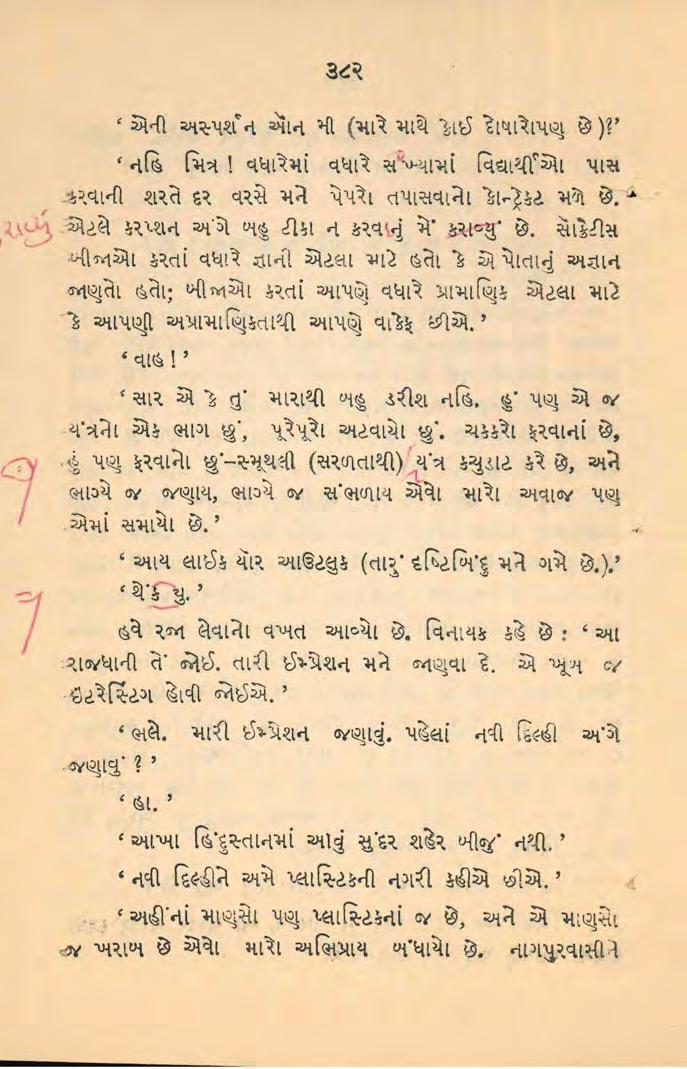 ૩૮૨
‘ એની અસ્પર્શન ઑન મી (મારે માથે કોઈ દોષારોપણ છે )?’
‘ નહિ મિત્ર ! વધારેમાં વધારે સંખ્યામાં વિદ્યાર્થીઓ પાસ
કરવાની શરતે દર વરસે મને પેપરો તપાસવાનો કોન્ટ્રેકટ મળે છે.
એટલે કરપ્શન અંગે બહુ ટીકા ન કરવાનું મેં કરાવ્યું છે. સૉક્રેટીસ
બીજાઓ કરતાં વધારે જ્ઞાની એટલા માટે હતો કે એ પોતાનું અજ્ઞાન
જાણતો હતો; બીજાઓ કરતાં આપણે વધારે પ્રામાણિક એટલા માટે
કે આપણી અપ્રામાણિકતાથી આપણે વાકેફ છીએ. ’
‘ વાહ ! ’
‘ સાર એ કે તું મારાથી બહુ ડરીશ નહિ. હું પણ એ જ
યંત્રનો એક ભાગ છું, પૂરેપૂરો અટવાયો છું. ચકકરો ફરવાનાં છે,
હું પણ ફરવાનો છું–સ્મૂથલી (સરળતાથી) યંત્ર કચુડાટ કરે છે, અને
ભાગ્યે જ જણાય, ભાગ્યે જ સંભળાય એવો મારો અવાજ પણ
એમાં સમાયો છે. ’
‘ આય લાઈક યૉર આઉટલુક (તારું દષ્ટિબિંદુ મને ગમે છે.).’
‘ થેંક યુ. ’
હવે રજા લેવાનો વખત આવ્યો છે. વિનાયક કહે છે : ‘ આ
રાજધાની તેં જોઈ. તારી ઈમ્પ્રેશન મને જાણવા દે. એ ખૂબ જ
ઇંટરેસ્ટિંગ હોવી જોઈએ. ’
‘ ભલે. મારી ઈમ્પ્રેશન જણાવું. પહેલાં નવી દિલ્હી અંગે
જણાવું ? ’
‘ હા. ’
‘ આખા હિંદુસ્તાનમાં આવું સુંદર શહેર બીજું નથી. ’
‘ નવી દિલ્હીને અમે પ્લાસ્ટિકની નગરી કહીએ છીએ. ’
‘ અહીંનાં માણસો પણ પ્લાસ્ટિકનાં જ છે, અને એ માણસો
જ ખરાબ છે એવો મારો અભિપ્રાય બંધાયો છે. નાગપુરવાસીને